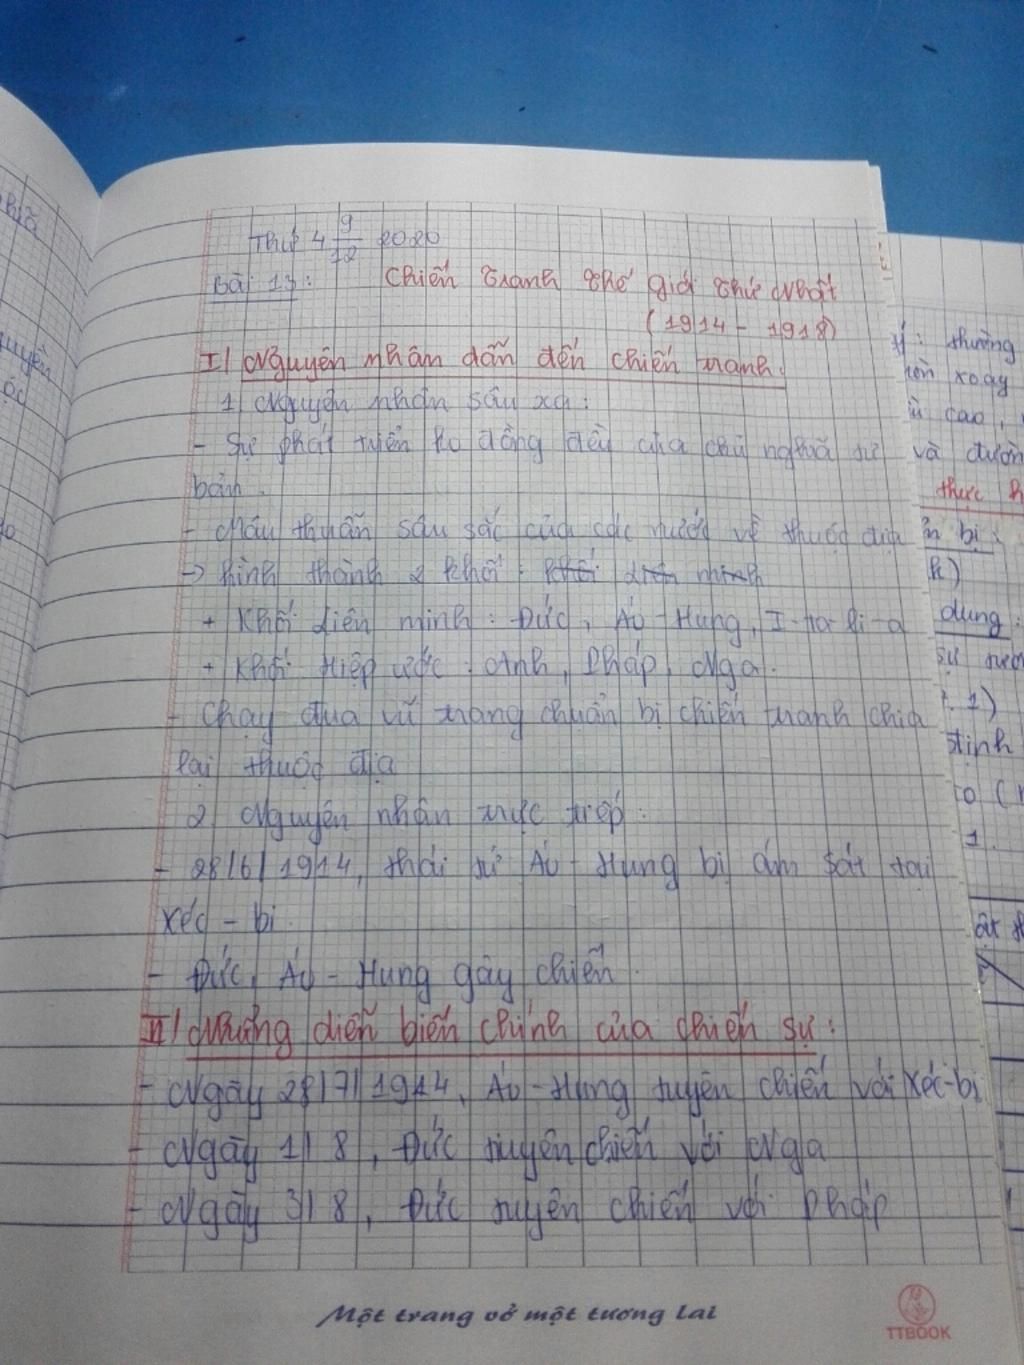 Thứ 4 9/12 2020
Bài 13: Chiến tranh thế giới thứ Nhất
(1914 - 1918)
I/ Nguyên nhân dẫn đến chiến tranh.
1) Nguyên nhân sâu xa:
- Sự phát triển ko đồng đều của chủ nghĩa tư
bản.
- Mâu thuẫn sâu sắc của các nước về thuộc địa
-> hình thành 2 khối: khối liên minh
+ Khối liên minh: Đức, Áo-Hung, I-ta-li-a
+ Khối Hiệp ước: Anh, Pháp, Nga.
- Chạy đua vũ trang chuẩn bị chiến tranh chia
lại thuộc địa
2) Nguyên nhân trực tiếp:
- 28/6/1914, thái tử Áo-Hung bị ám sát tại
Xéc-bi.
- Đức, Áo-Hung gây chiến.
II/ Những diễn biến chính của chiến sự:
- Ngày 28/7/1914, Áo-Hung tuyên chiến với Xéc-bi
- Ngày 1/8, Đức tuyên chiến với Nga
- Ngày 3/8, Đức tuyên chiến với Pháp
Một trang vở một tương lai
TTBOOK
thường
xoay
cao,
và
thực
bị
dung:
sự
1)
định
1.